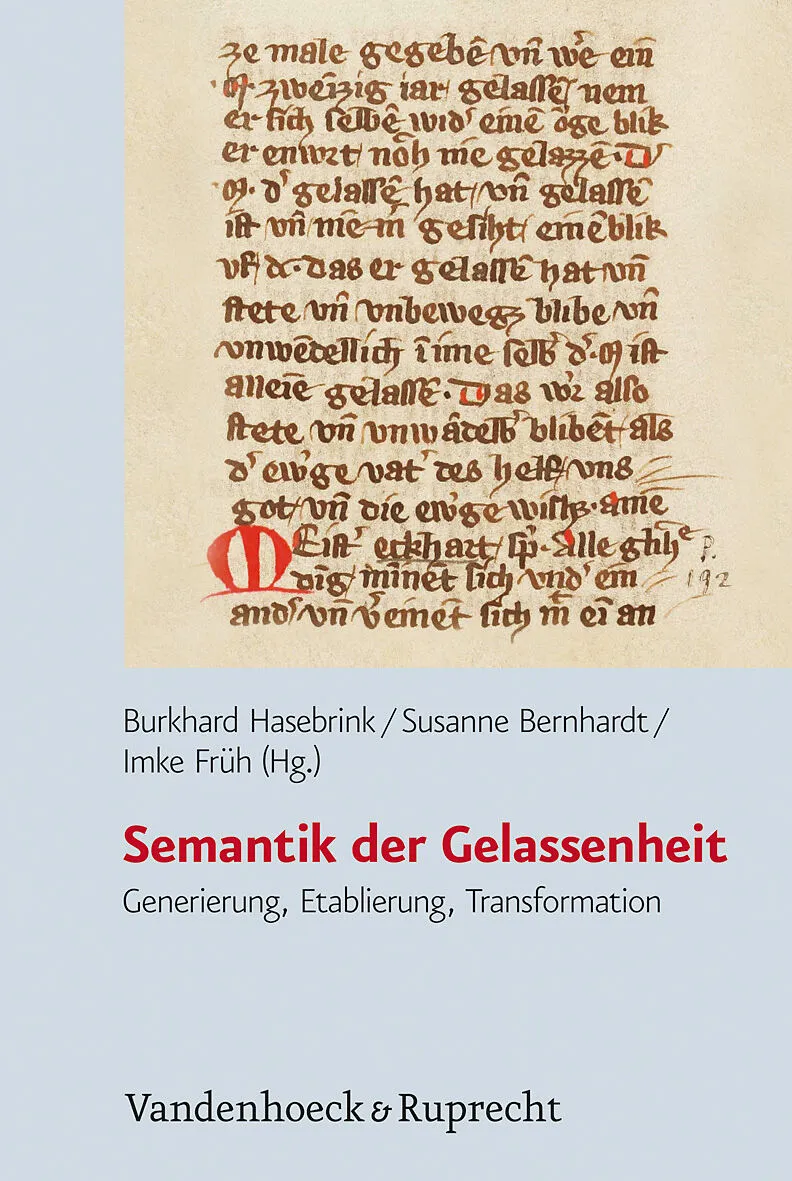 ze male gegebē vn̄ wͤe ein
M. zwēizig iar gelassē nem
er sich selbē wid' einē o̊ge blik
er enwrt noͮh nie gelazzē. D'
M. d' gelassē hat vn̄ gelassē
ist vn̄ niē m̄ gesiht einē blik
vf dc. das er gelassē hat vn̄
stete vn̄ vnbewegʒ blibe vn̄
vnwēdellich ī ime selb' d'. M ist
alleīe gelassē. Das wr also
stete vn̄ vnwādelb' blibēt als
d' ew'ge vat' des helf vns
got vn̄ die ew'ge wish.. ame
Meist' eckhart sp'. Alle glihͤ
dīg minēt sich vnd' ein
and' vn̄ v'einet sich m̄ eī an
P.
192
Burkhard Hasebrink / Susanne Bernhardt /
Imke Früh (Hg.)
Semantik der Gelassenheit
Generierung, Etablierung, Transformation
Vandenhoeck & Ruprecht